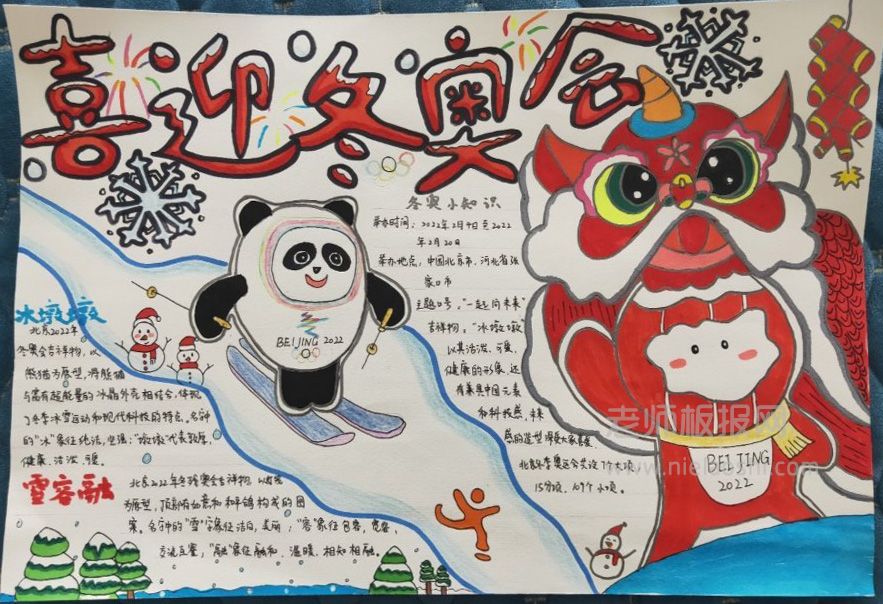 喜迎冬奥会
冬奥小知识
举办时间：2022年2月4日至2022
年2月20日
举办地点：中国北京市、河北省张
家口市
主题口号："一起向未来"
吉祥物："冰墩墩"
以其活泼、可爱、
健康的形象，还
有兼具中国元素
和科技感，未来
感的造型深受大家喜爱
北京冬季奥运会共设7个大项，
15分项，109个小项。
BEIJING 2022
冰墩墩
北京2022年
冬奥会吉祥物，以
熊猫为原型，将熊猫
与富有超能量的冰晶外壳相结合，体现
了冬季冰雪运动和现代科技的特点。名字中
的"冰"象征纯洁、坚强："墩墩"代表敦厚，
健康、活泼、可爱。
雪容融
北京2022年冬残奥会吉祥物
为原型，顶部有如意和和平鸽构成的图
案。名字中的"雪"象征洁白、美丽；"容"象征包容、宽容，
交流互鉴；"融"象征融和、温暖、相知相融。
BEIJING
2022
老师板报网